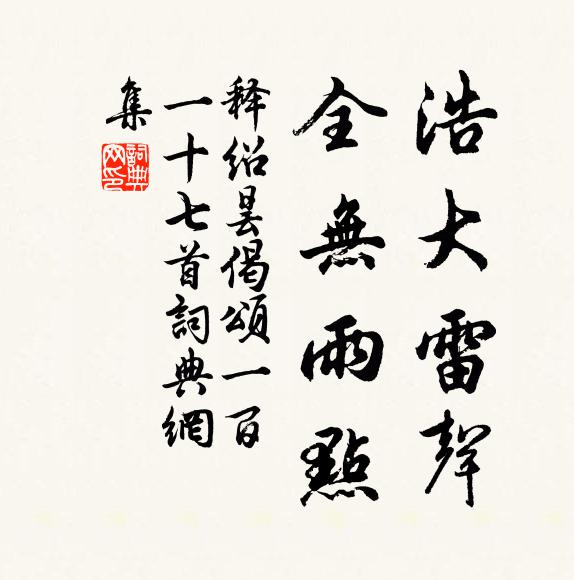 浩大雷聲
全無雨點
释绍昙偈頌一百
一十七首詞典網
集
詞典网印